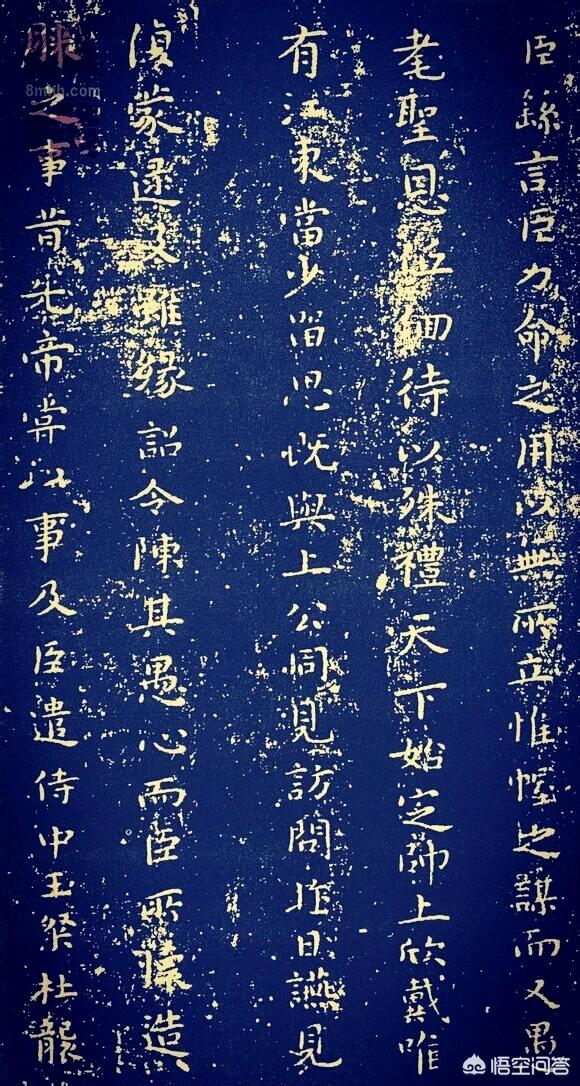 臣繇言臣力命之用以無所立惟幄之謀而又愚
耄聖恩低佪待以殊禮天下始定帥上欣戴唯
有江東當少留思既與上公同見訪問昨日讌見
復蒙逮及雖緣詔令陳其愚心而臣所懷造
膝之事昔先帝嘗以事及臣遣侍中王粲杜襲
悟空问答